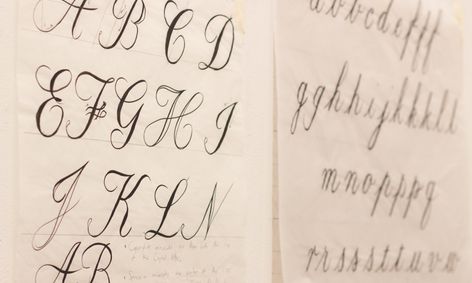 A B C D
E F G H I
J K L N
A B
a b b c d e f f f
g g h h i j k k k l l
m n o p p p q
r r s s s t t u v w